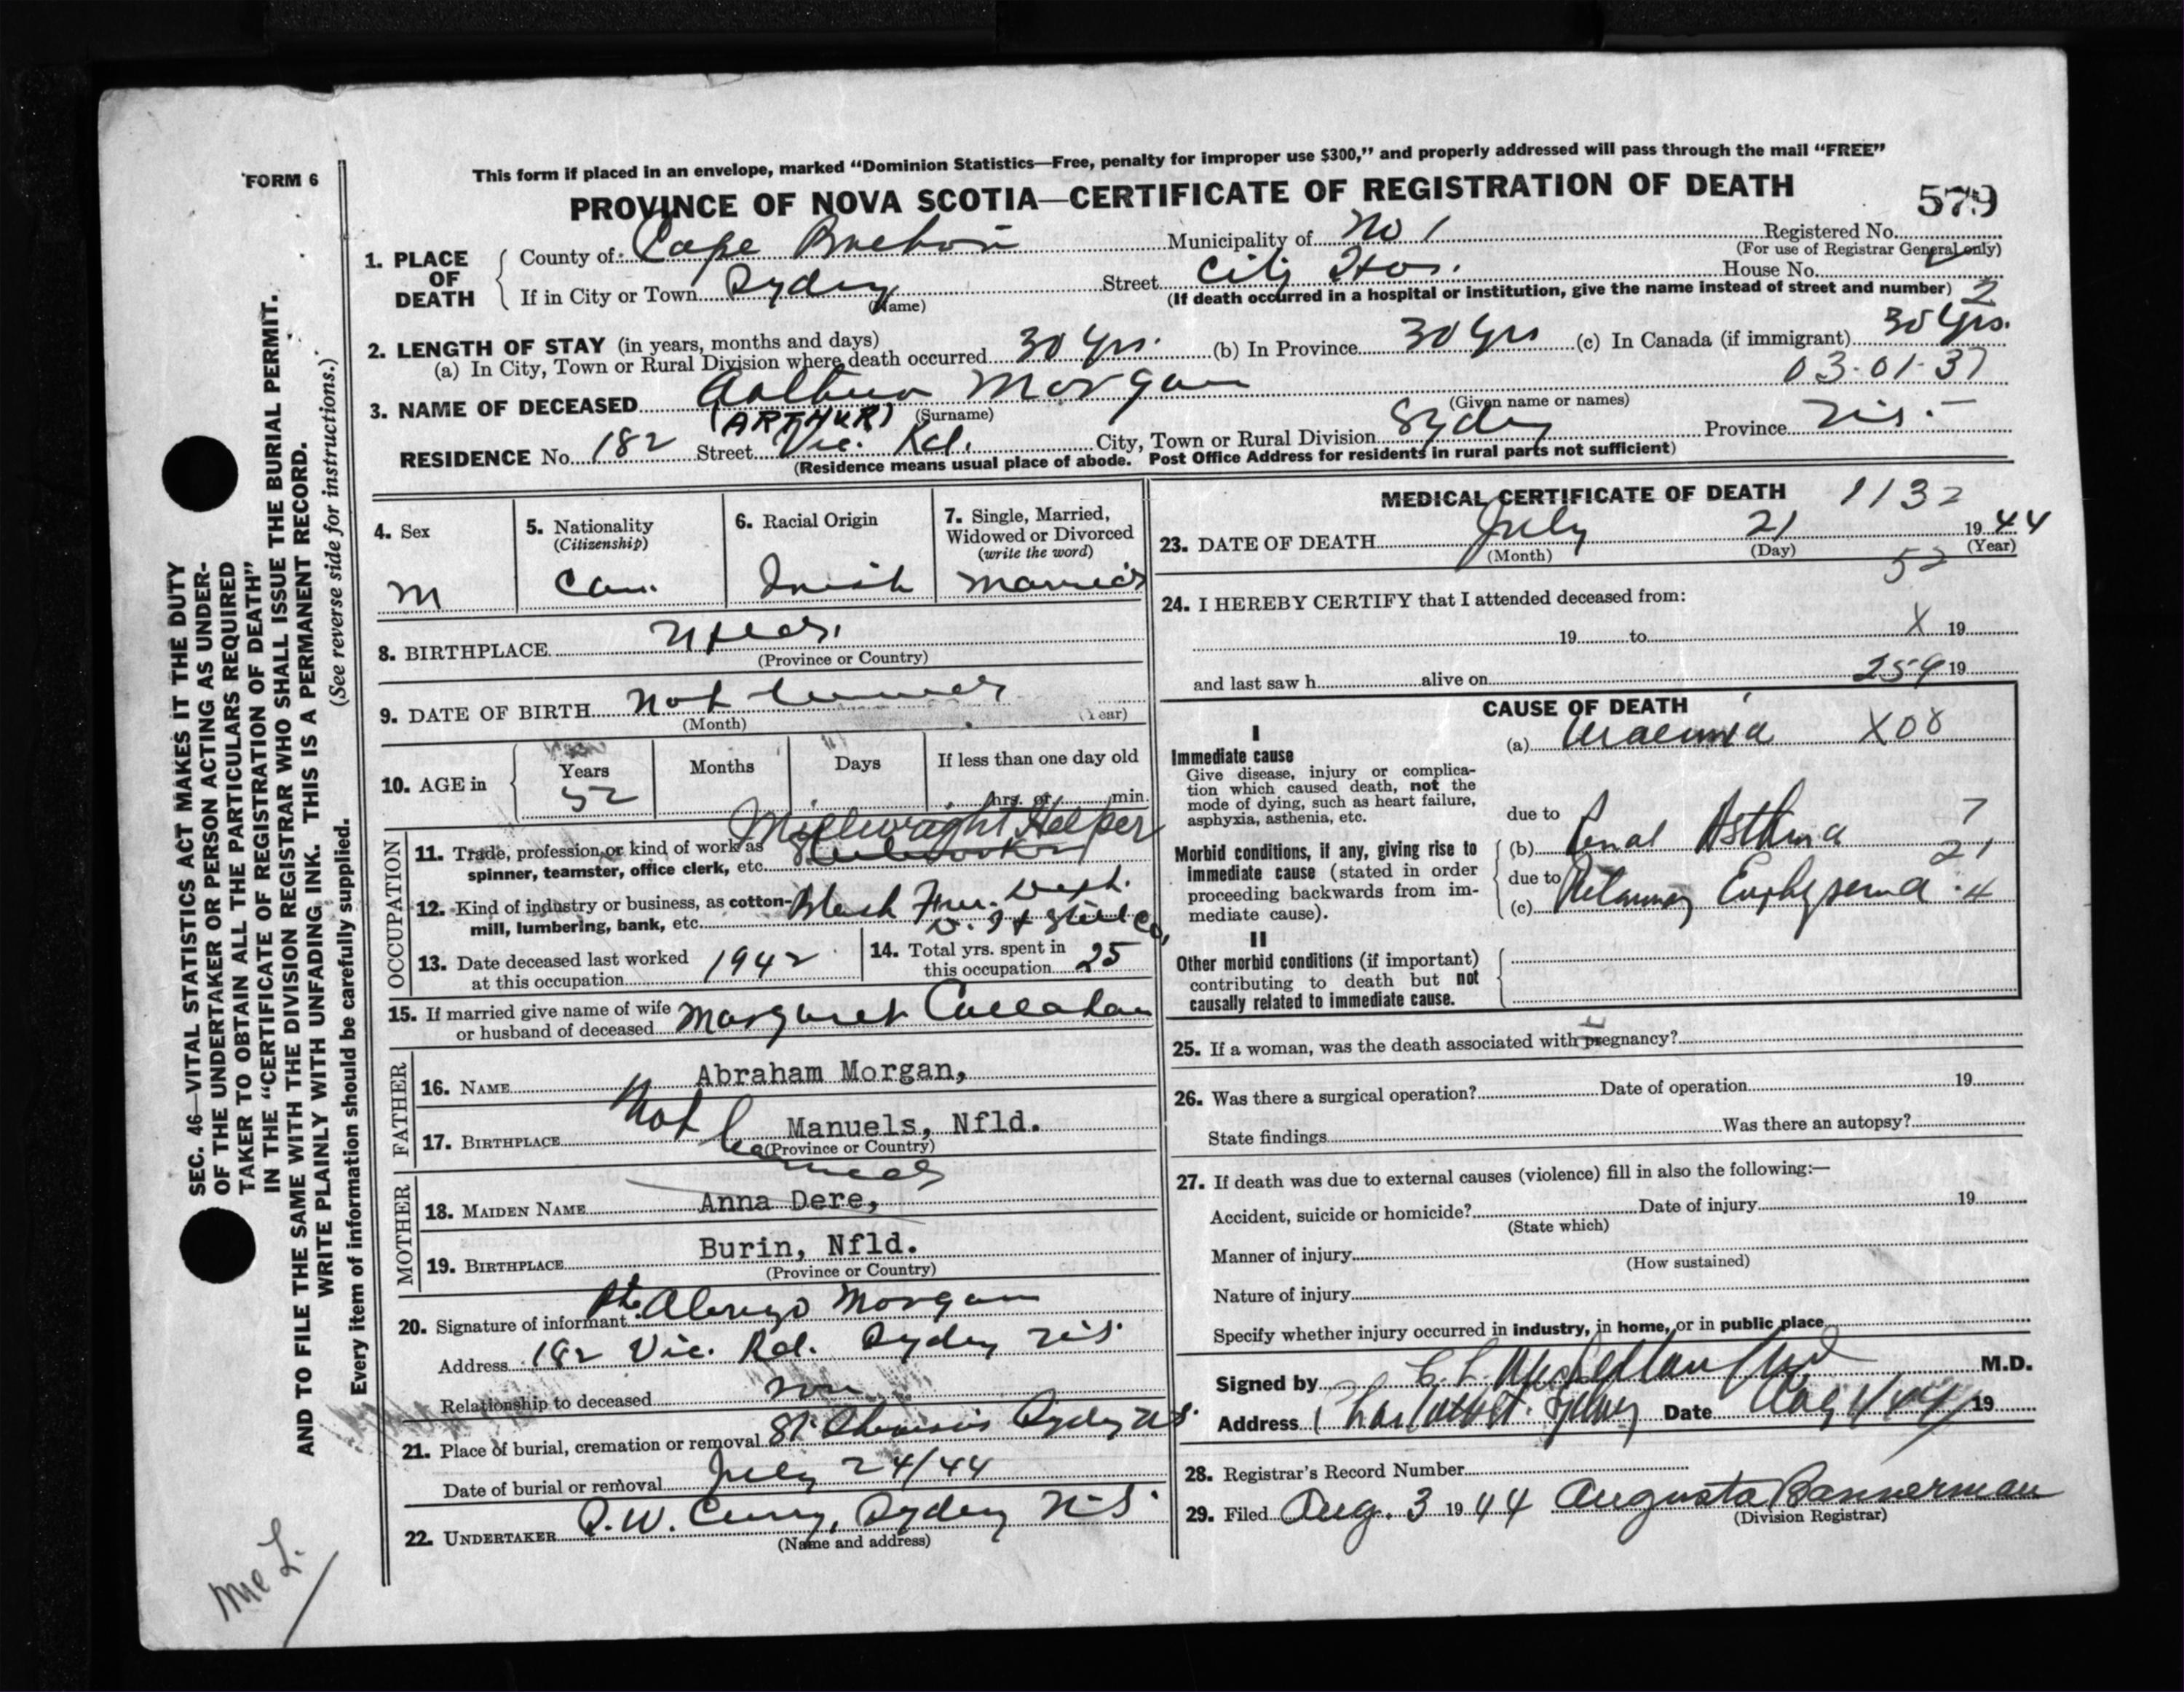 FORM 6
This form if placed in an envelope, marked “Dominion Statistics—Free, penalty for improper use $300,” and properly addressed will pass through the mail “FREE”
PROVINCE OF NOVA SCOTIA—CERTIFICATE OF REGISTRATION OF DEATH
579
1. PLACE OF DEATH
County of Cape Breton Municipality of No 1 Registered No.
(For use of Registrar General only)
If in City or Town Sydney Street City Hos. House No.
(Name) (If death occurred in a hospital or institution, give the name instead of street and number) 2
2. LENGTH OF STAY (in years, months and days)
(a) In City, Town or Rural Division where death occurred 30 Yrs. (b) In Province 30 Yrs (c) In Canada (if immigrant) 30 Yrs.
03-01-37
3. NAME OF DECEASED Arthur Morgan
(ARTHUR) (Surname) (Given name or names)
RESIDENCE No. 182 Street Vic. Rd. City, Town or Rural Division Sydney Province N.S.
(Residence means usual place of abode. Post Office Address for residents in rural parts not sufficient)
4. Sex
M
5. Nationality
(Citizenship)
Can.
6. Racial Origin
Irish
7. Single, Married, Widowed or Divorced
(write the word)
Married
8. BIRTHPLACE Nfld.
(Province or Country)
9. DATE OF BIRTH Not known
(Month) (Year)
10. AGE in
Years Months Days If less than one day old
52 hrs. or min.
OCCUPATION
Millwright Helper
11. Trade, profession or kind of work as
spinner, teamster, office clerk, etc. Steelworker
12. Kind of industry or business, as cotton-
mill, lumbering, bank, etc. Blast Fur. Dept.
D. I & Steel Co,
13. Date deceased last worked
at this occupation 1942
14. Total yrs. spent in
this occupation 25
15. If married give name of wife
or husband of deceased Margaret Callahan
FATHER
16. NAME Abraham Morgan,
Not known
17. BIRTHPLACE Manuels, Nfld.
(Province or Country)
MOTHER
18. MAIDEN NAME Anna Dere,
19. BIRTHPLACE Burin, Nfld.
(Province or Country)
20. Signature of informant Pte Alonzo Morgan
Address 182 Vic. Rd. Sydney N.S.
Relationship to deceased son
21. Place of burial, cremation or removal Sydney N.S.
Date of burial or removal July 24/44
22. UNDERTAKER Curry, Sydney N.S.
(Name and address)
MEDICAL CERTIFICATE OF DEATH 1132
23. DATE OF DEATH July 21 1944
(Month) (Day) (Year)
52
24. I HEREBY CERTIFY that I attended deceased from:
19 to X 19
and last saw h alive on 259 19
CAUSE OF DEATH
I
Immediate cause
Give disease, injury or complica-
tion which caused death, not the
mode of dying, such as heart failure,
asphyxia, asthenia, etc.
(a) Uraemia X08
due to
Morbid conditions, if any, giving rise to
immediate cause (stated in order
proceeding backwards from im-
mediate cause).
(b) Renal Asthma 7
21
due to
(c) Emphysema 4
II
Other morbid conditions (if important)
contributing to death but not
causally related to immediate cause.
25. If a woman, was the death associated with pregnancy?
26. Was there a surgical operation? Date of operation 19
State findings Was there an autopsy?
27. If death was due to external causes (violence) fill in also the following:—
Accident, suicide or homicide? Date of injury 19
(State which)
Manner of injury
(How sustained)
Nature of injury
Specify whether injury occurred in industry, in home, or in public place
Signed by M.D.
Address Charlotte St. Sydney Date Aug 19
28. Registrar's Record Number
29. Filed Aug. 3 1944 Augusta Bannerman
(Division Registrar)
SEC. 46—VITAL STATISTICS ACT MAKES IT THE DUTY
OF THE UNDERTAKER OR PERSON ACTING AS UNDER-
TAKER TO OBTAIN ALL THE PARTICULARS REQUIRED
IN THE “CERTIFICATE OF REGISTRATION OF DEATH”
AND TO FILE THE SAME WITH THE DIVISION REGISTRAR WHO SHALL ISSUE THE BURIAL PERMIT.
WRITE PLAINLY WITH UNFADING INK. THIS IS A PERMANENT RECORD.
Every item of information should be carefully supplied. (See reverse side for instructions.)
Mc L.